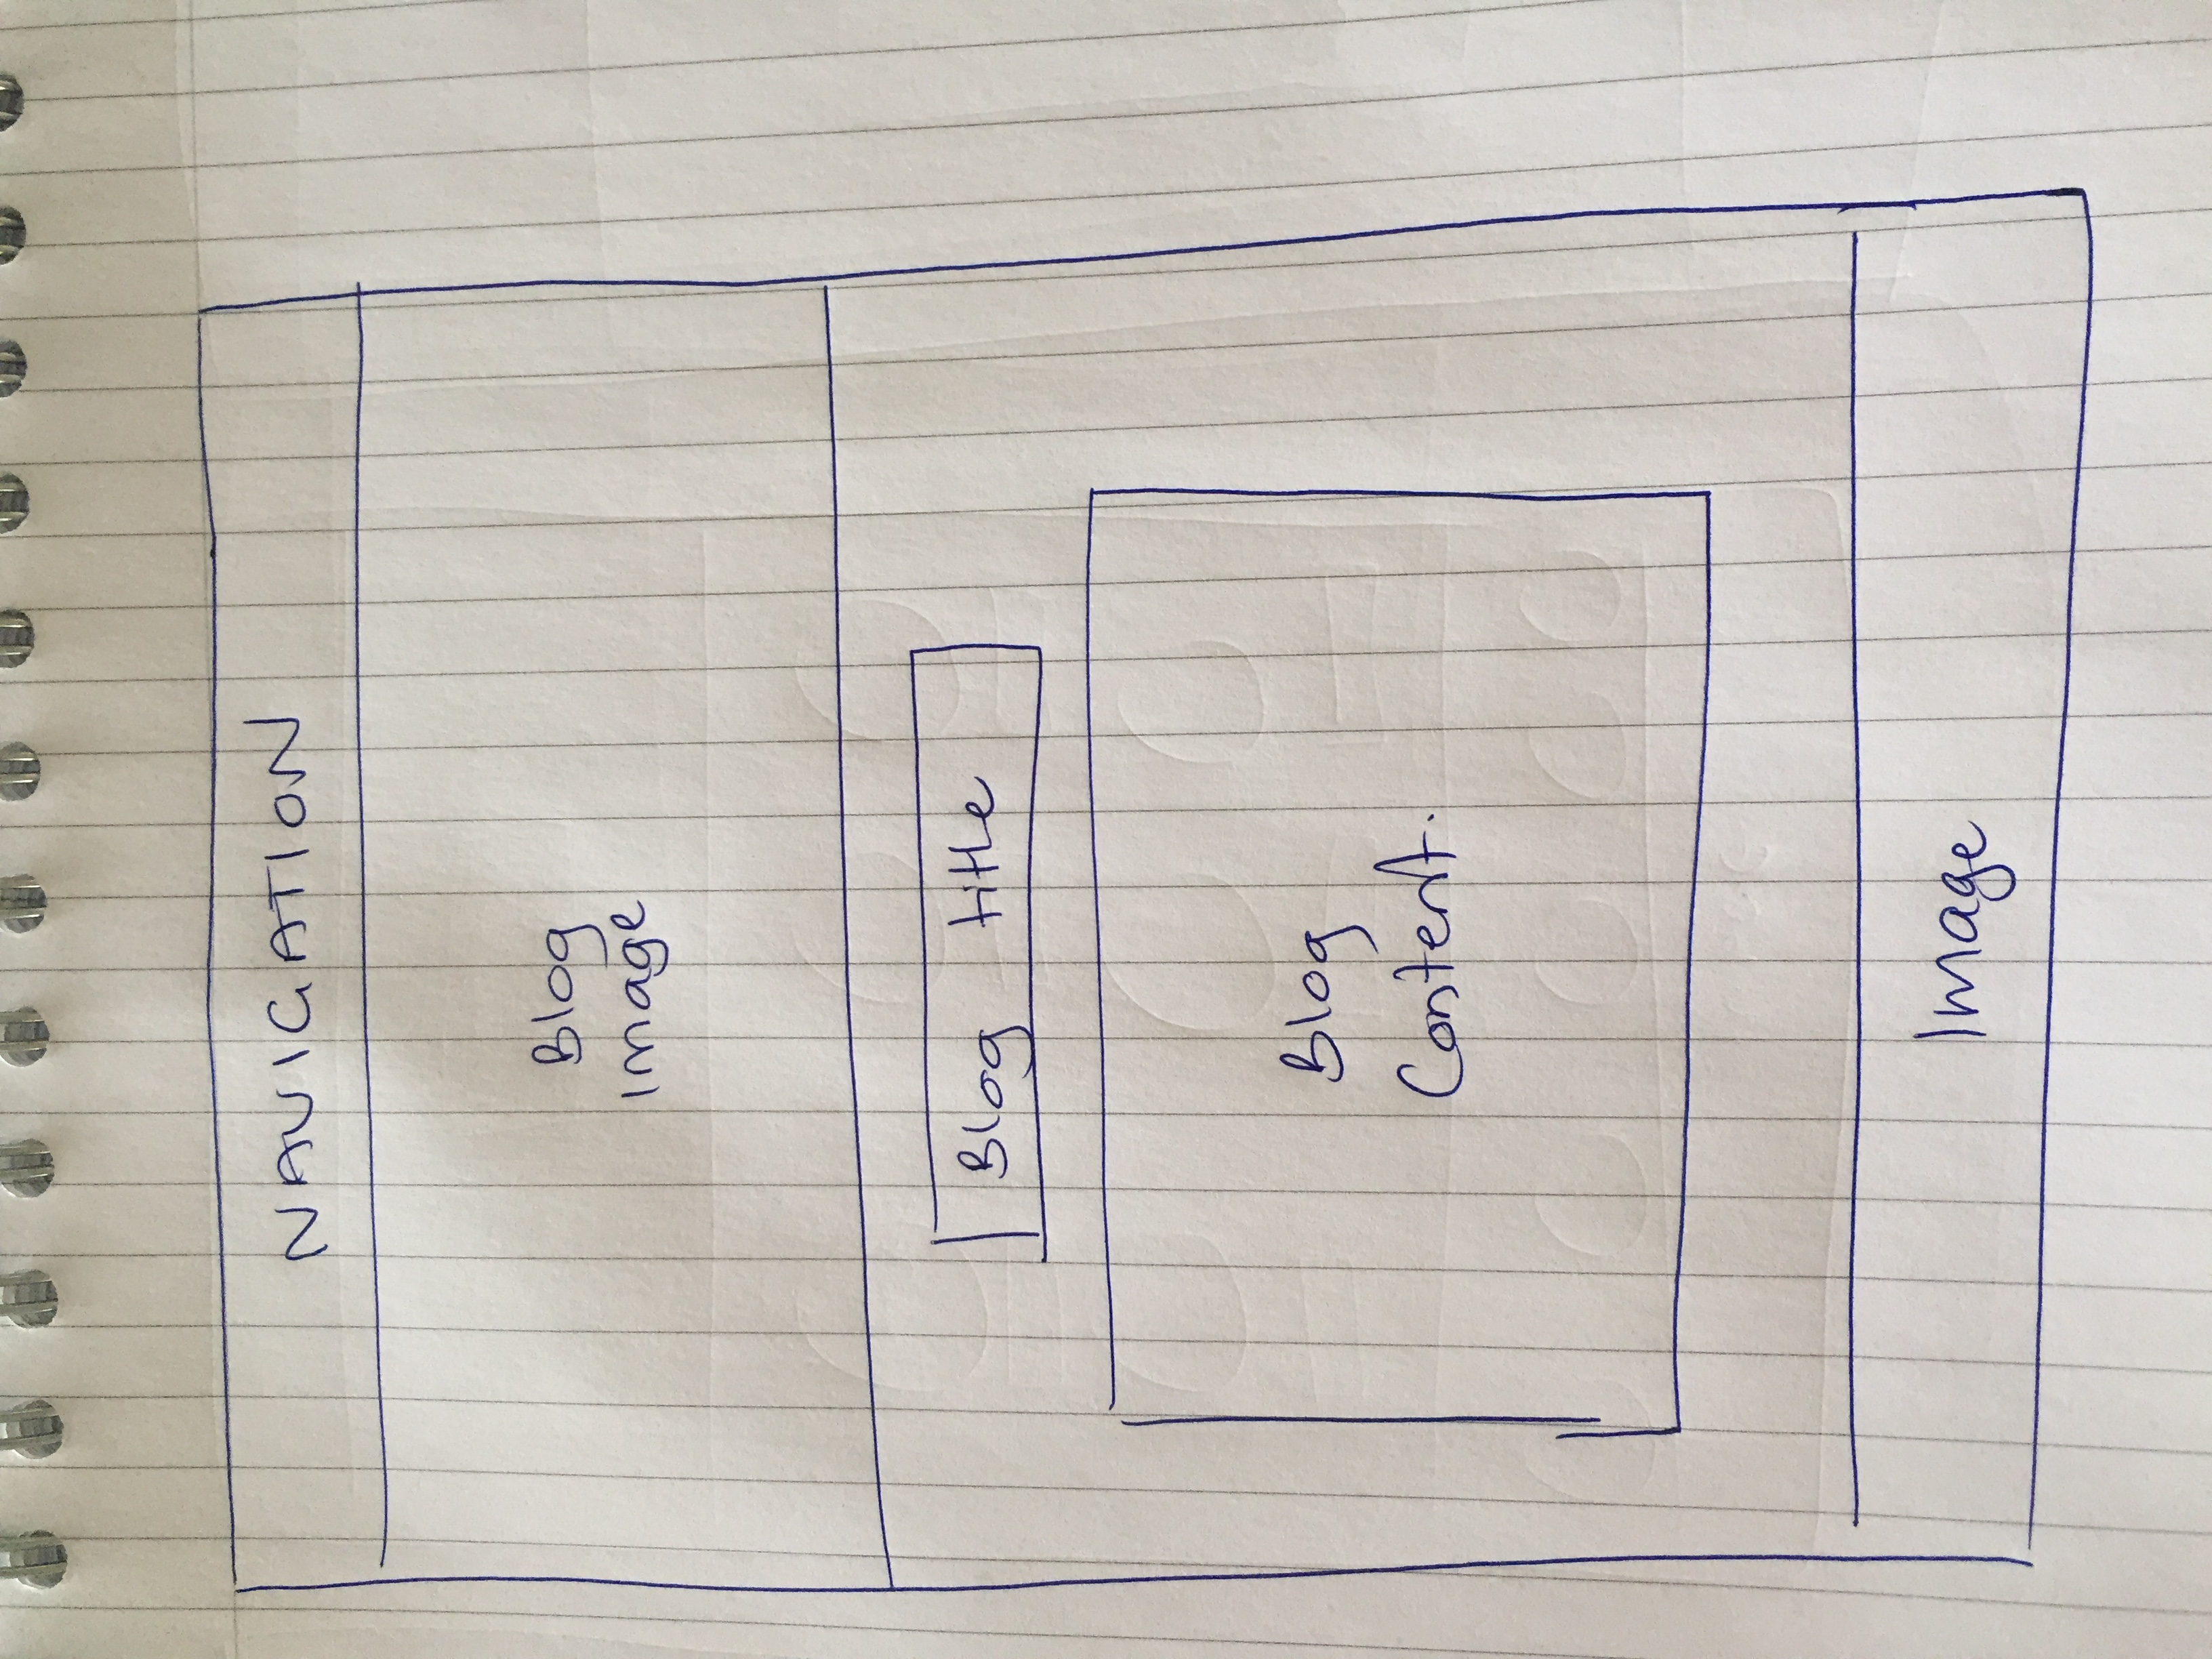 NAVIGATION
Blog
Image
Blog title
Blog
Content.
Image